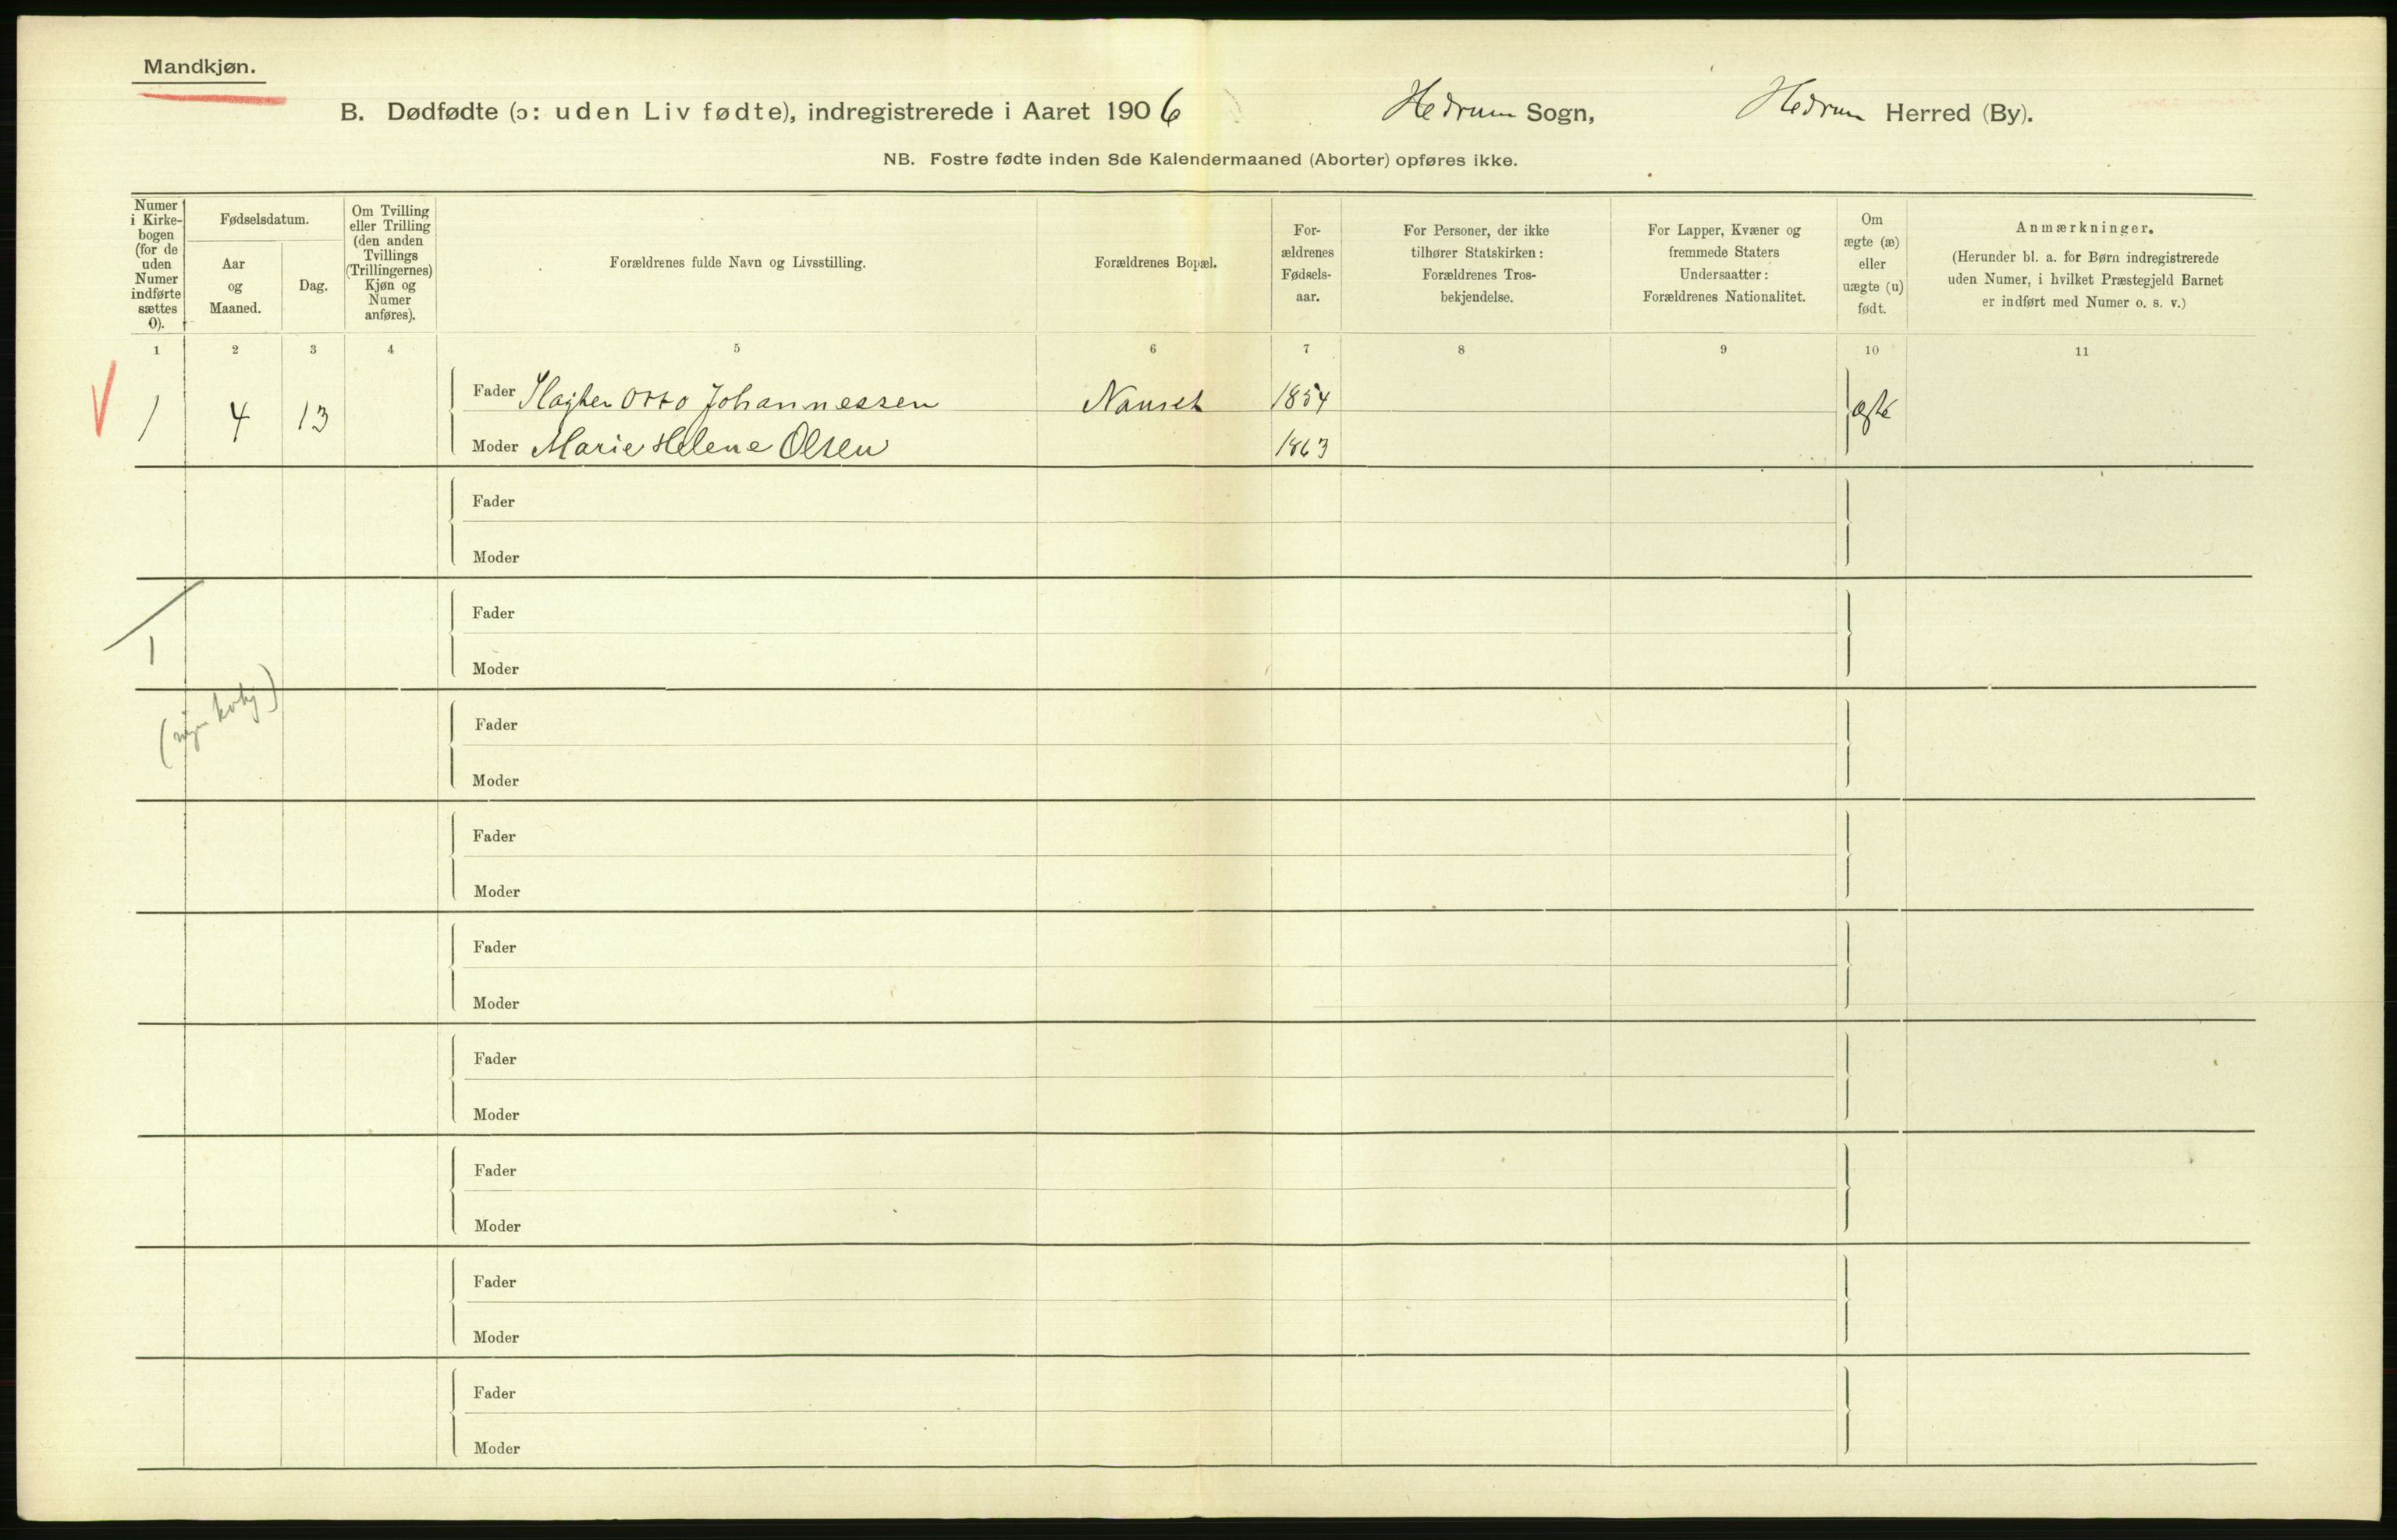 Mandkjøn.
B. Dødfødte (ɔ: uden Liv fødte), indregistrerede i Aaret 1906 Hedrum Sogn, Hedrum Herred (By).
NB. Fostre fødte inden 8de Kalendermaaned (Aborter) opføres ikke.
Numer
i Kirke-
bogen
(for de
uden
Numer
indførte
sættes
0).
Fødselsdatum.
Aar
og
Maaned.
Dag.
Om Tvilling
eller Trilling
(den anden
Tvillings
(Trillingernes)
Kjøn og
Numer
anføres).
Forældrenes fulde Navn og Livsstilling.
Forældrenes Bopæl.
For-
ældrenes
Fødsels-
aar.
For Personer, der ikke
tilhører Statskirken:
Forældrenes Tros-
bekjendelse.
For Lapper, Kvæner og
fremmede Staters
Undersaatter:
Forældrenes Nationalitet.
Om
ægte (æ)
eller
uægte (u)
født.
Anmærkninger.
(Herunder bl. a. for Børn indregistrerede
uden Numer, i hvilket Præstegjeld Barnet
er indført med Numer o. s. v.)
1 2 3 4 5 6 7 8 9 10 11
Fader Slagter Otto Johannessen Nanset 1854
1 4 13 ægte
Moder Marie Helene Olsen 1863
Fader
Moder
Fader
1
Moder
Fader
Moder
Fader
Moder
Fader
Moder
Fader
Moder
Fader
Moder
Fader
Moder
Fader
Moder